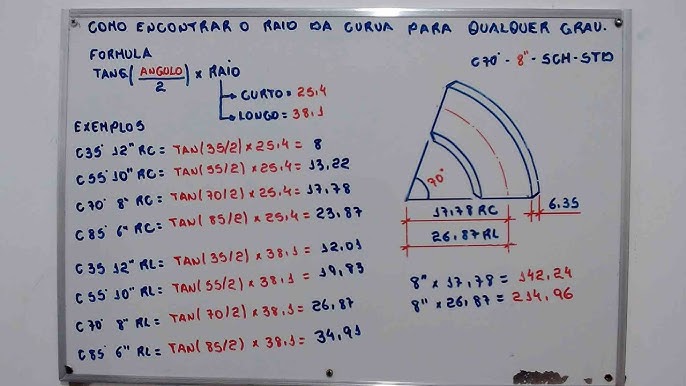 COMO ENCONTRAR O RAIO DA CURVA PARA QUALQUER GRAU.
FORMULA
TANG(ANGULO/2) x RAIO
CURTO = 25,4
LONGO = 38,1
EXEMPLOS
C35° 12" RC = TAN(35/2) x 25,4 = 8
C55° 10" RC = TAN(55/2) x 25,4 = 13,22
C70° 8" RC = TAN(70/2) x 25,4 = 17,78
C85° 6" RC = TAN(85/2) x 25,4 = 23,87
C35 12" RL = TAN(35/2) x 38,1 = 12,01
C55° 10" RL = TAN(55/2) x 38,1 = 19,83
C70° 8" RL = TAN(70/2) x 38,1 = 26,87
C85° 6" RL = TAN(85/2) x 38,1 = 34,91
C70° - 8" - SCH - STD
70°
6.35
17,78 RC
26,87 RL
8" x 17,78 = 142,24
8" x 26,87 = 214,96